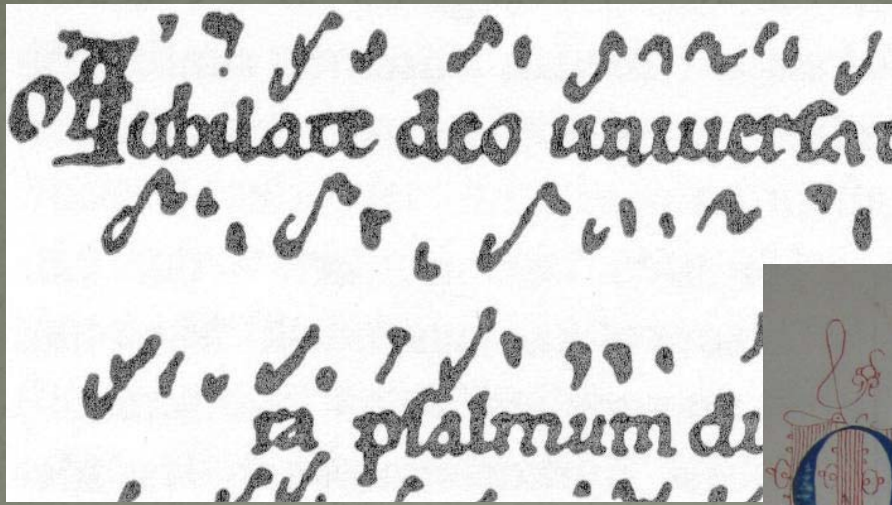 Iubilate deo uniuersa
ra psalmum di